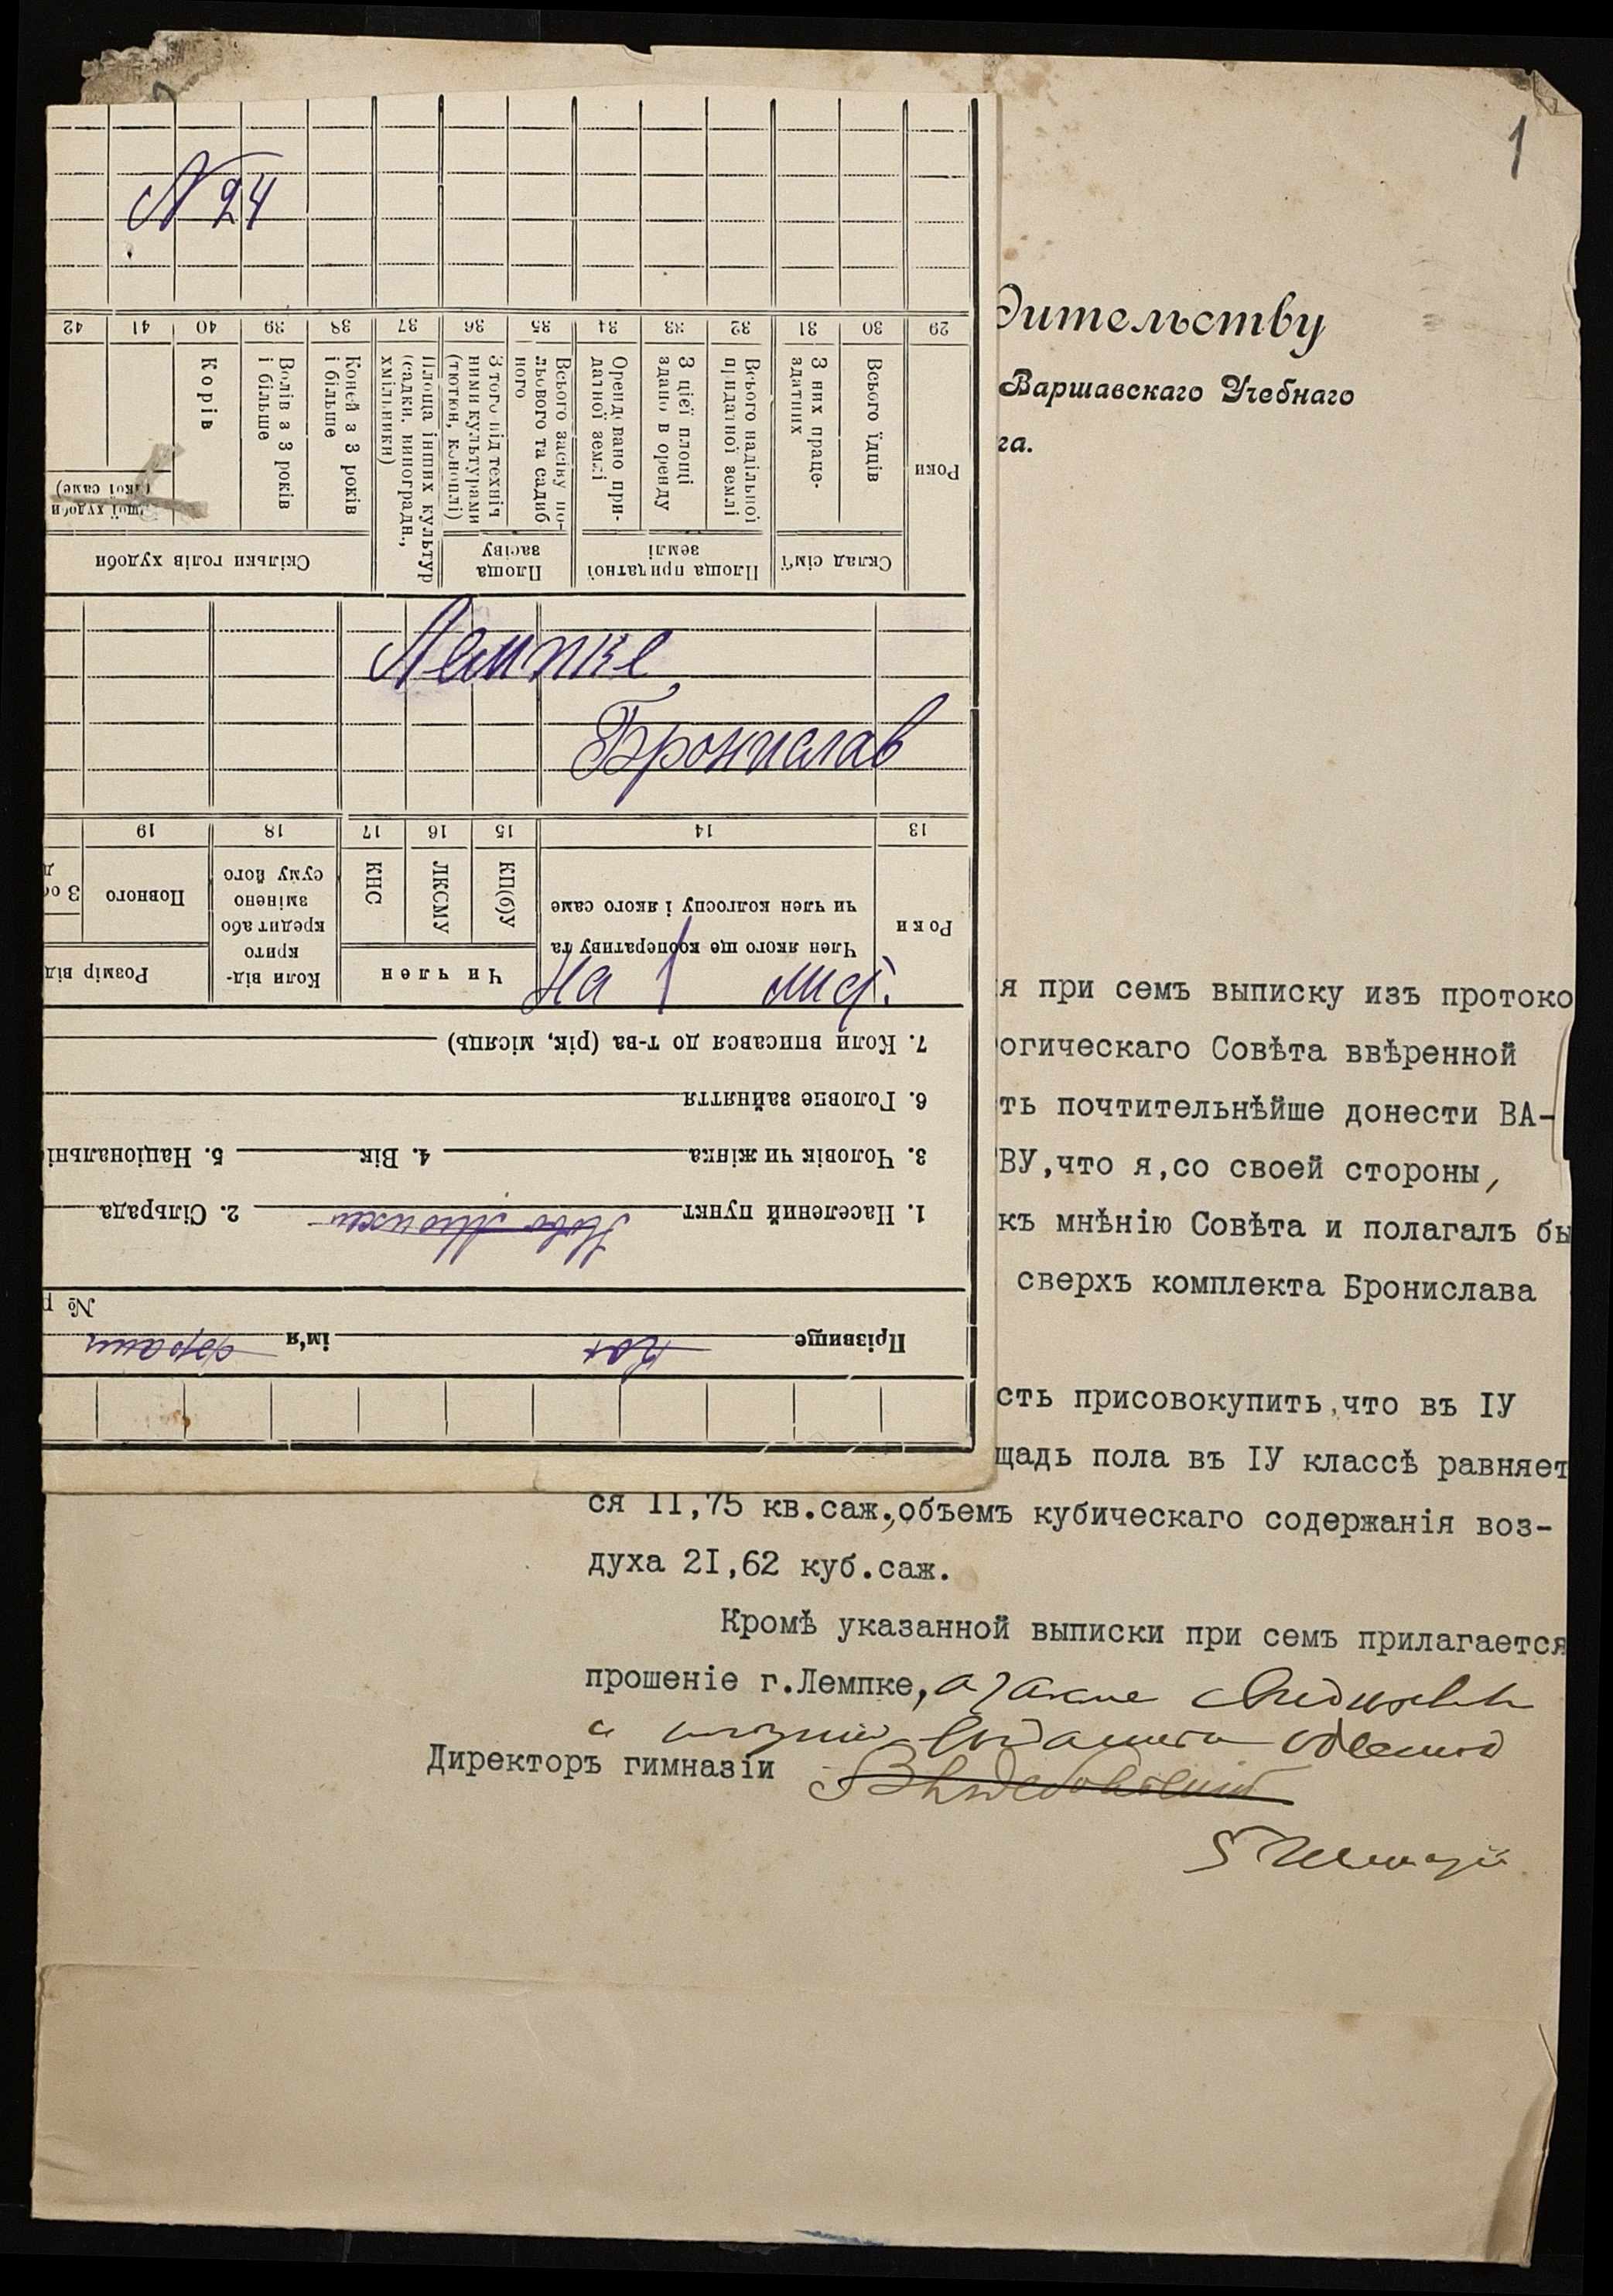 1
N 24
29
30
31
32
33
34
35
36
37
38
39
40
41
42
Роки
Всього їдців
З них праце-
здатних
Всього надільної
придатної землі
З цієї площі
здано в оренду
Орендовано при-
датної землі
Всього засіву по-
льового та садиб
ного
З того під техніч
ними культурами
(тютюн, коноплі)
Площа інших культур
(садки, виноградн.,
хмільники)
Коней з 3 років
і більше
Волів з 3 років
і більше
Корів
шої худоби
(якої саме)
Склад сім'ї
Площа придатної
землі
Площа
засіву
Скільки голів худоби
Лемпке
Бронислав
13
14
15
16
17
18
19
Роки
Член якого ще кооперативу та
чи член колгоспу і якого саме
КП(б)У
ЛКСМУ
КНС
Чи член
Коли від-
крито
кредит або
змінено
суму його
Повного
Розмір від
На 1 лист.
7. Коли вписався до т-ва (рік, місяць)
6. Головне зайняття
3. Чоловік чи жінка 4. Вік 5. Національні
1. Населений пункт 2. Сільрада
№ р
Прізвище ім'я
дительству
Варшавскаго Учебнаго
га.
я при семъ выписку изъ протоко
огическаго Совѣта ввѣренной
ть почтительнѣйше донести ВА-
ВУ,что я,со своей стороны,
къ мнѣнію Совѣта и полагалъ бы
сверхъ комплекта Бронислава
сть присовокупить,что въ IУ
щадь пола въ IУ классѣ равняет
ся II,75 кв.саж.,объемъ кубическаго содержанія воз-
духа 2I,62 куб.саж.
Кромѣ указанной выписки при семъ прилагается
прошеніе г.Лемпке, а также
Директоръ гимназіи